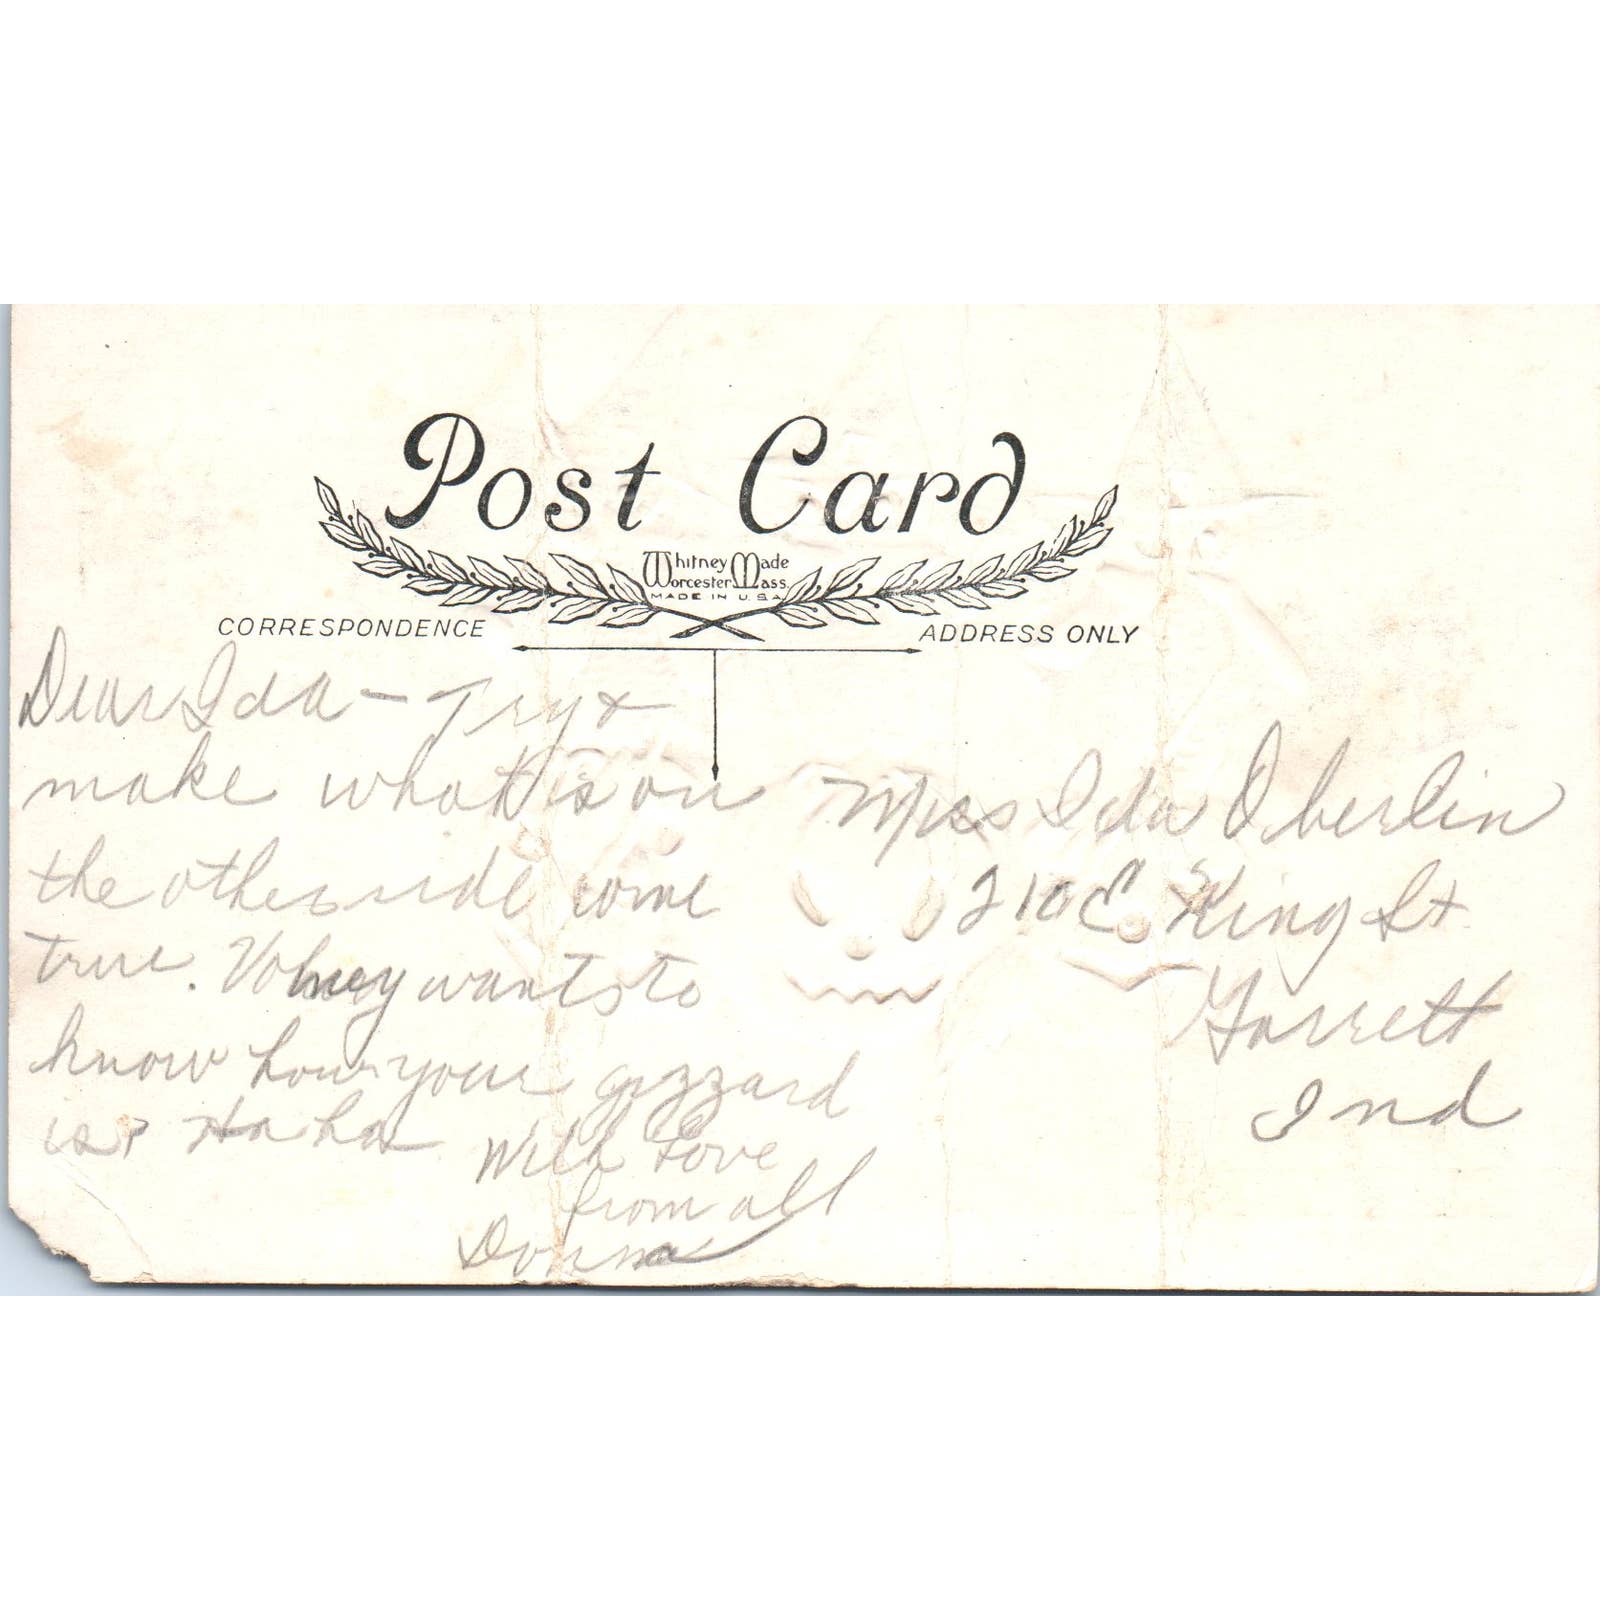 Post Card
Whitney Made
Worcester Mass.
MADE IN U.S.A.
CORRESPONDENCE
ADDRESS ONLY
Dear Ida - Try &
make what is on
the otherside come
true. Volney wants to
know how your gizzard
is? Ha ha
With Love
from all
Donna
Miss Ida Oberlin
210 E. King St
Garrett
Ind